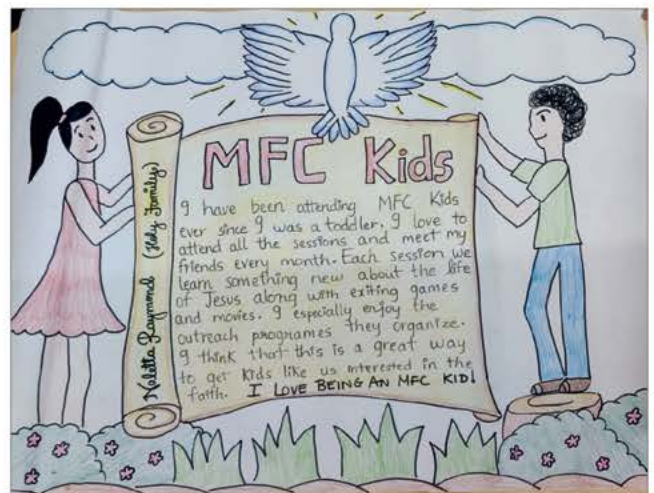 MFC Kids
I have been attending MFC Kids
ever since I was a toddler. I love to
attend all the sessions and meet my
friends every month. Each session we
learn something new about the life
of Jesus along with exiting games
and movies. I especially enjoy the
outreach programes they organize.
I think that this is a great way
to get kids like us interested in the
faith. I LOVE BEING AN MFC KID!
Naletta Raymond (Holy Family)